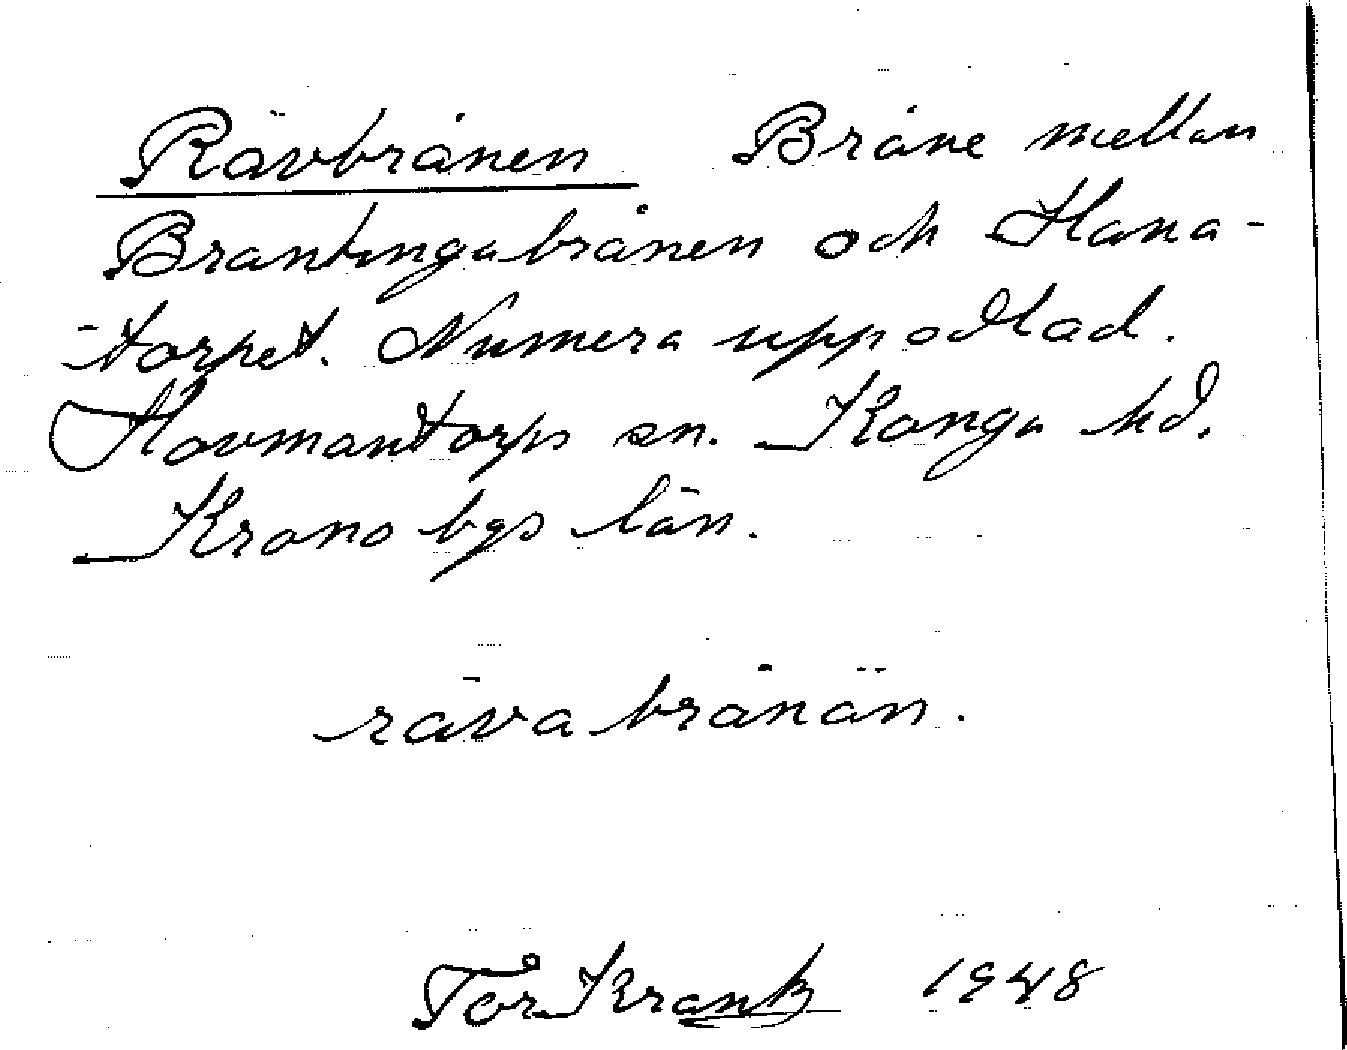 Rävbrånen Bråne mellan
Brantingabrånen och Hana-
-torpet. Numera uppodlad.
Hovmantorps sn. Konga hd.
Kronobgs län.
räva brånän.
Tor Krank 1948